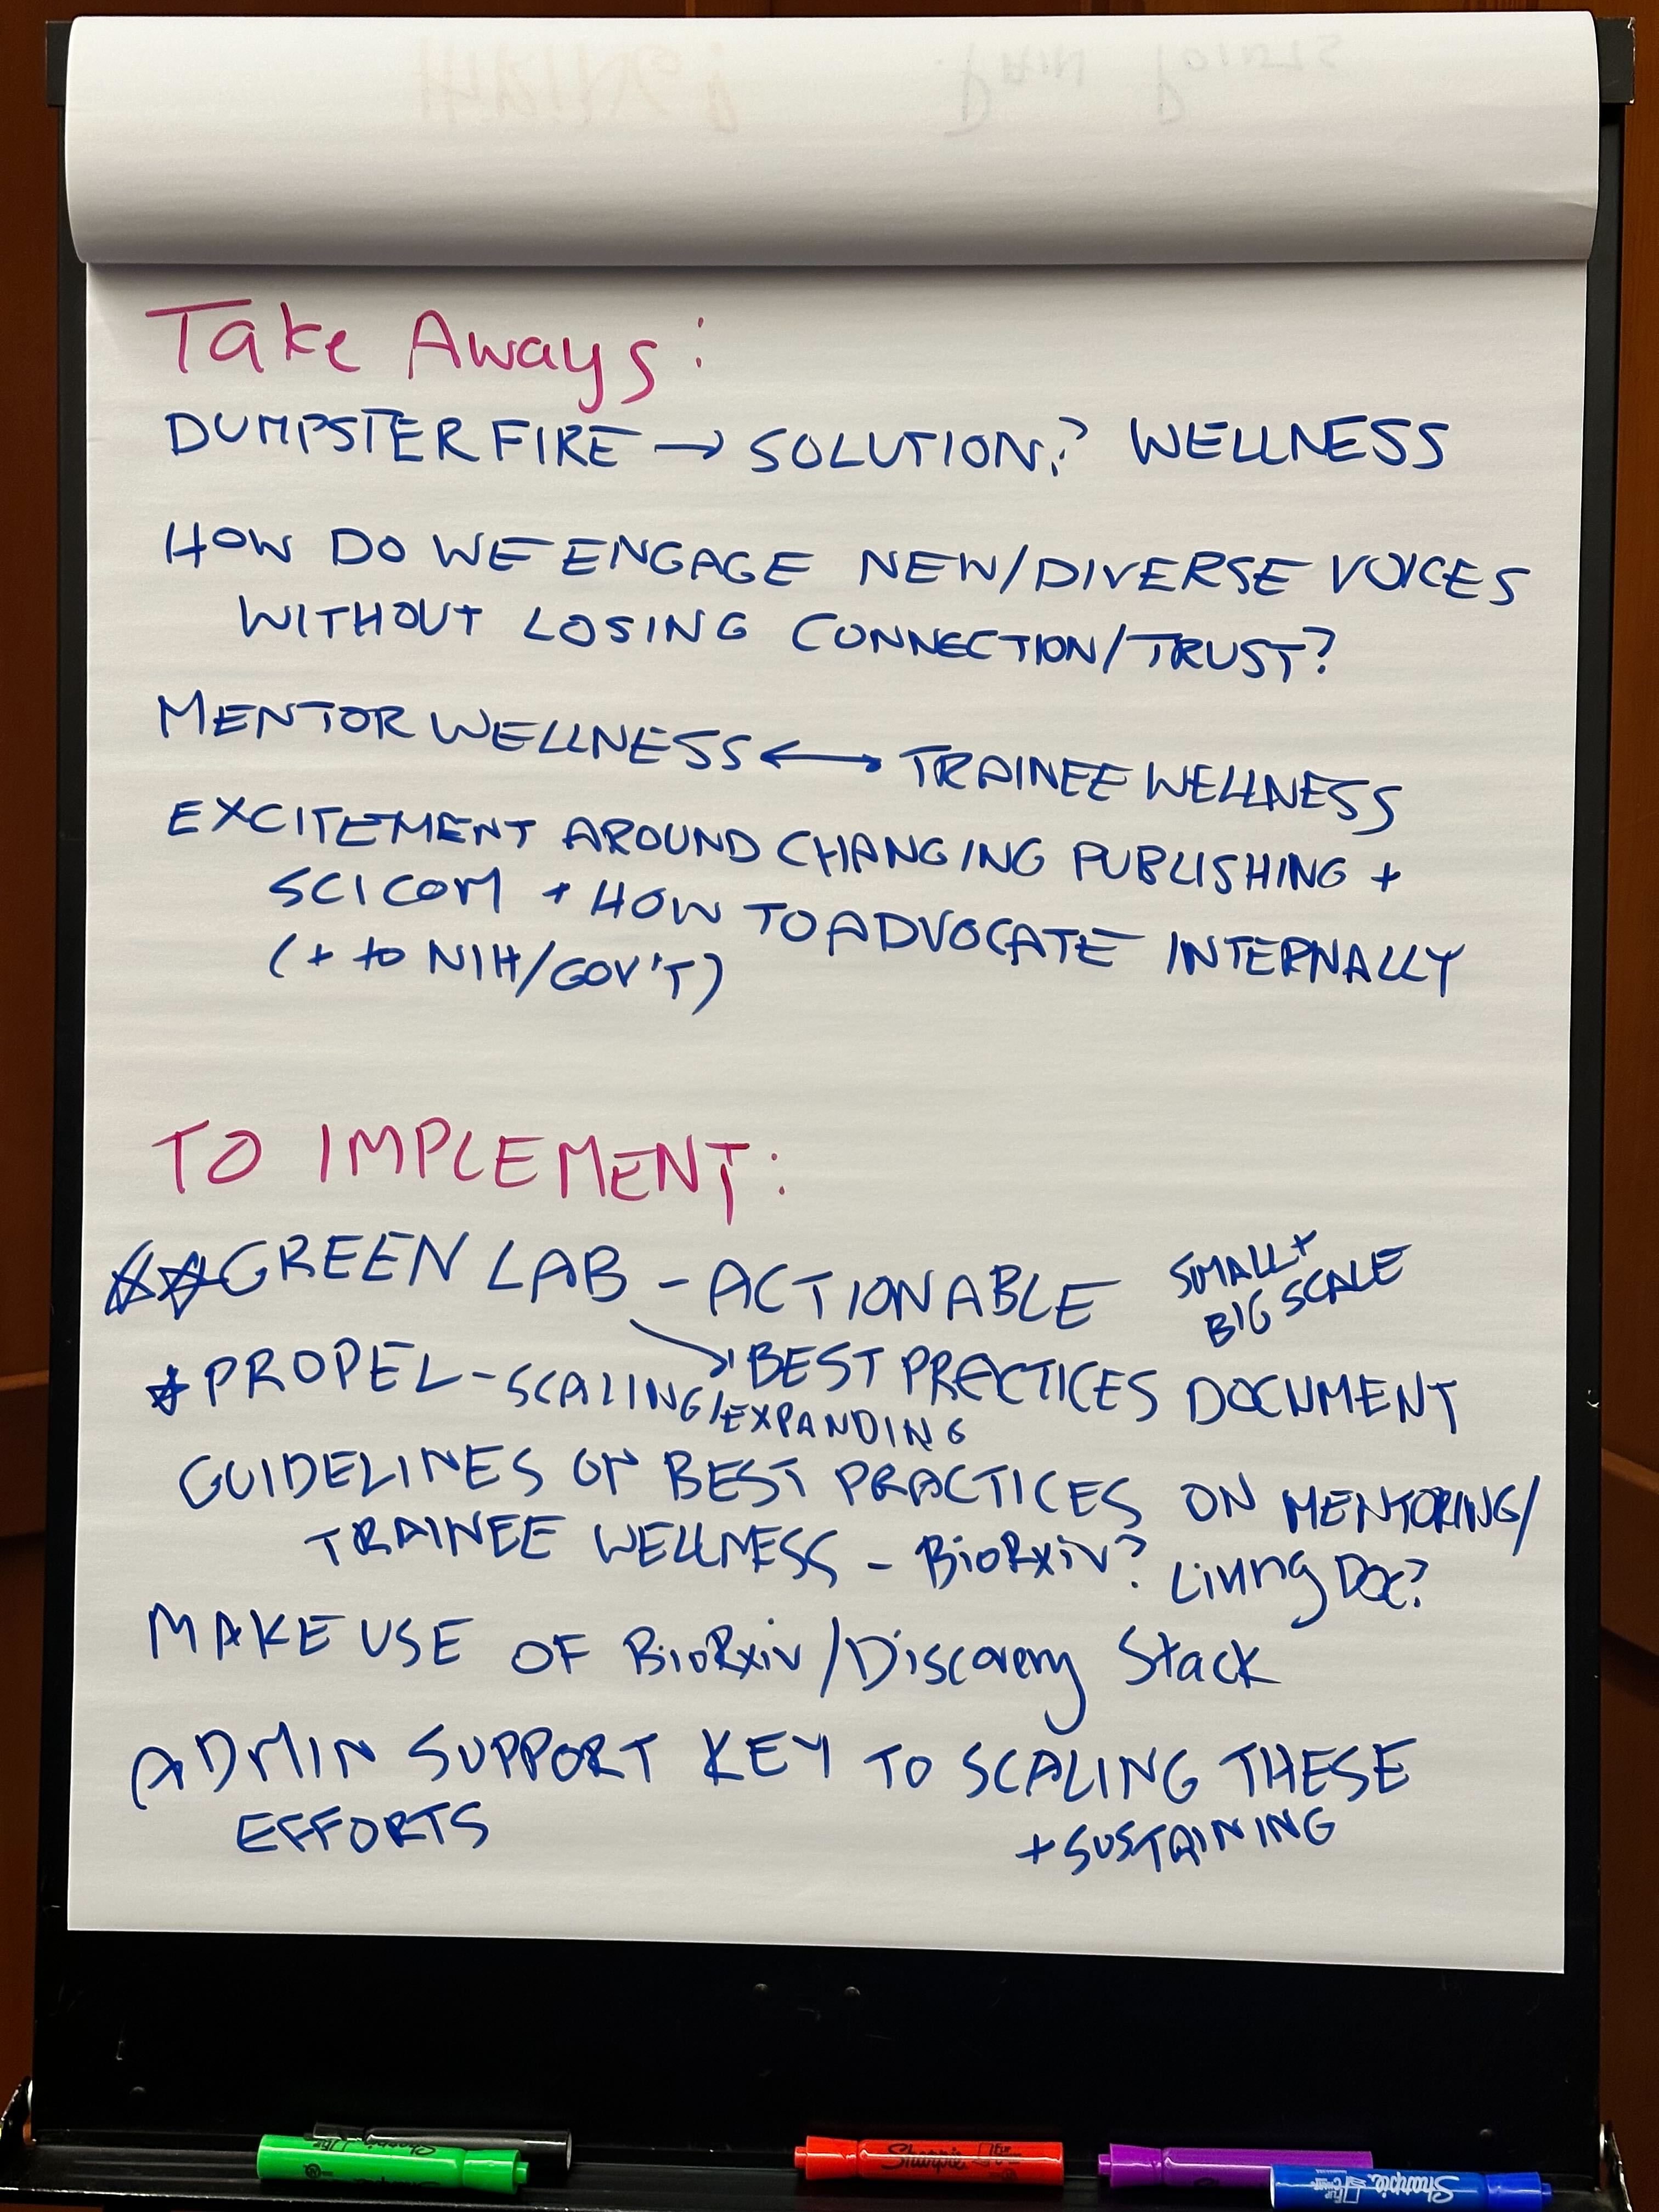 Take Aways:
DUMPSTER FIRE → SOLUTION? WELLNESS
HOW DO WE ENGAGE NEW/DIVERSE VOICES
WITHOUT LOSING CONNECTION/TRUST?
MENTOR WELLNESS ↔ TRAINEE WELLNESS
EXCITEMENT AROUND CHANGING PUBLISHING +
SCI COM + HOW TO ADVOCATE INTERNALLY
(+ to NIH/GOV'T)
TO IMPLEMENT:
☆☆ GREEN LAB - ACTIONABLE SMALL +
BIG SCALE
→ BEST PRACTICES DOCUMENT
☆ PROPEL - SCALING/EXPANDING
GUIDELINES ON BEST PRACTICES ON MENTORING/
TRAINEE WELLNESS - BioRxiv? Living Doc?
MAKE USE OF BioRxiv/Discovery Stack
ADMIN SUPPORT KEY TO SCALING THESE
EFFORTS + SUSTAINING
Sharpie
Sharpie
Sharpie
Sharpie